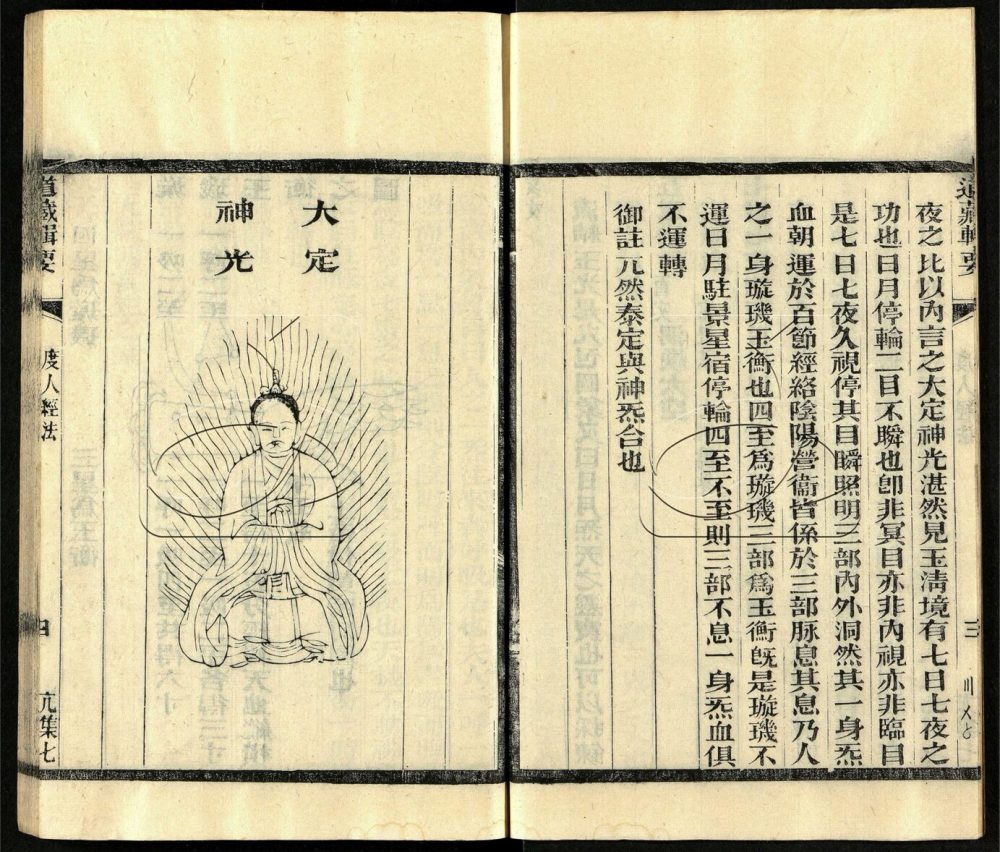 夜之比以內言之大定神光湛然見玉淸境有七日七夜之
功也日月停輪二目不瞬也卽非冥目亦非內視亦非臨目
是七日七夜久視停其目瞬照明三部內外洞然其一身炁
血朝運於百節經絡陰陽營衞皆係於三部脉息其息乃人
之一身璇璣玉衡也四至爲璇璣三部爲玉衡旣是璇璣不
運日月駐景星宿停輪四至不至則三部不息一身炁血俱
不運轉
御註兀然泰定與神炁合也
大定
神光
道藏輯要
度人經法
亢集七